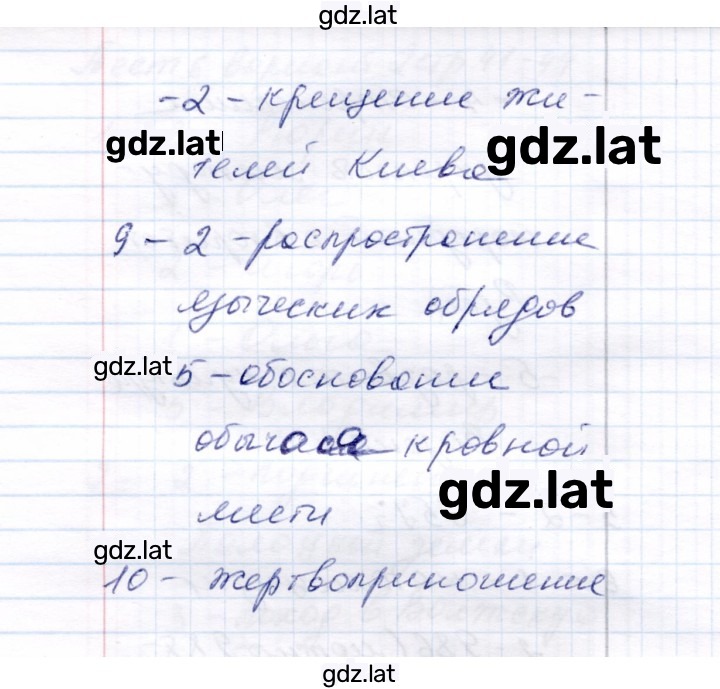 gdz.lat
-2 - крещение жи-
gdz.lat
gdz.lat
телей Киева
9 - 2 - распространение
языческих обрядов
gdz.lat
5 - обоснование
обычая кровной
gdz.lat
мести
gdz.lat
10 - жертвоприношение
gdz.lat